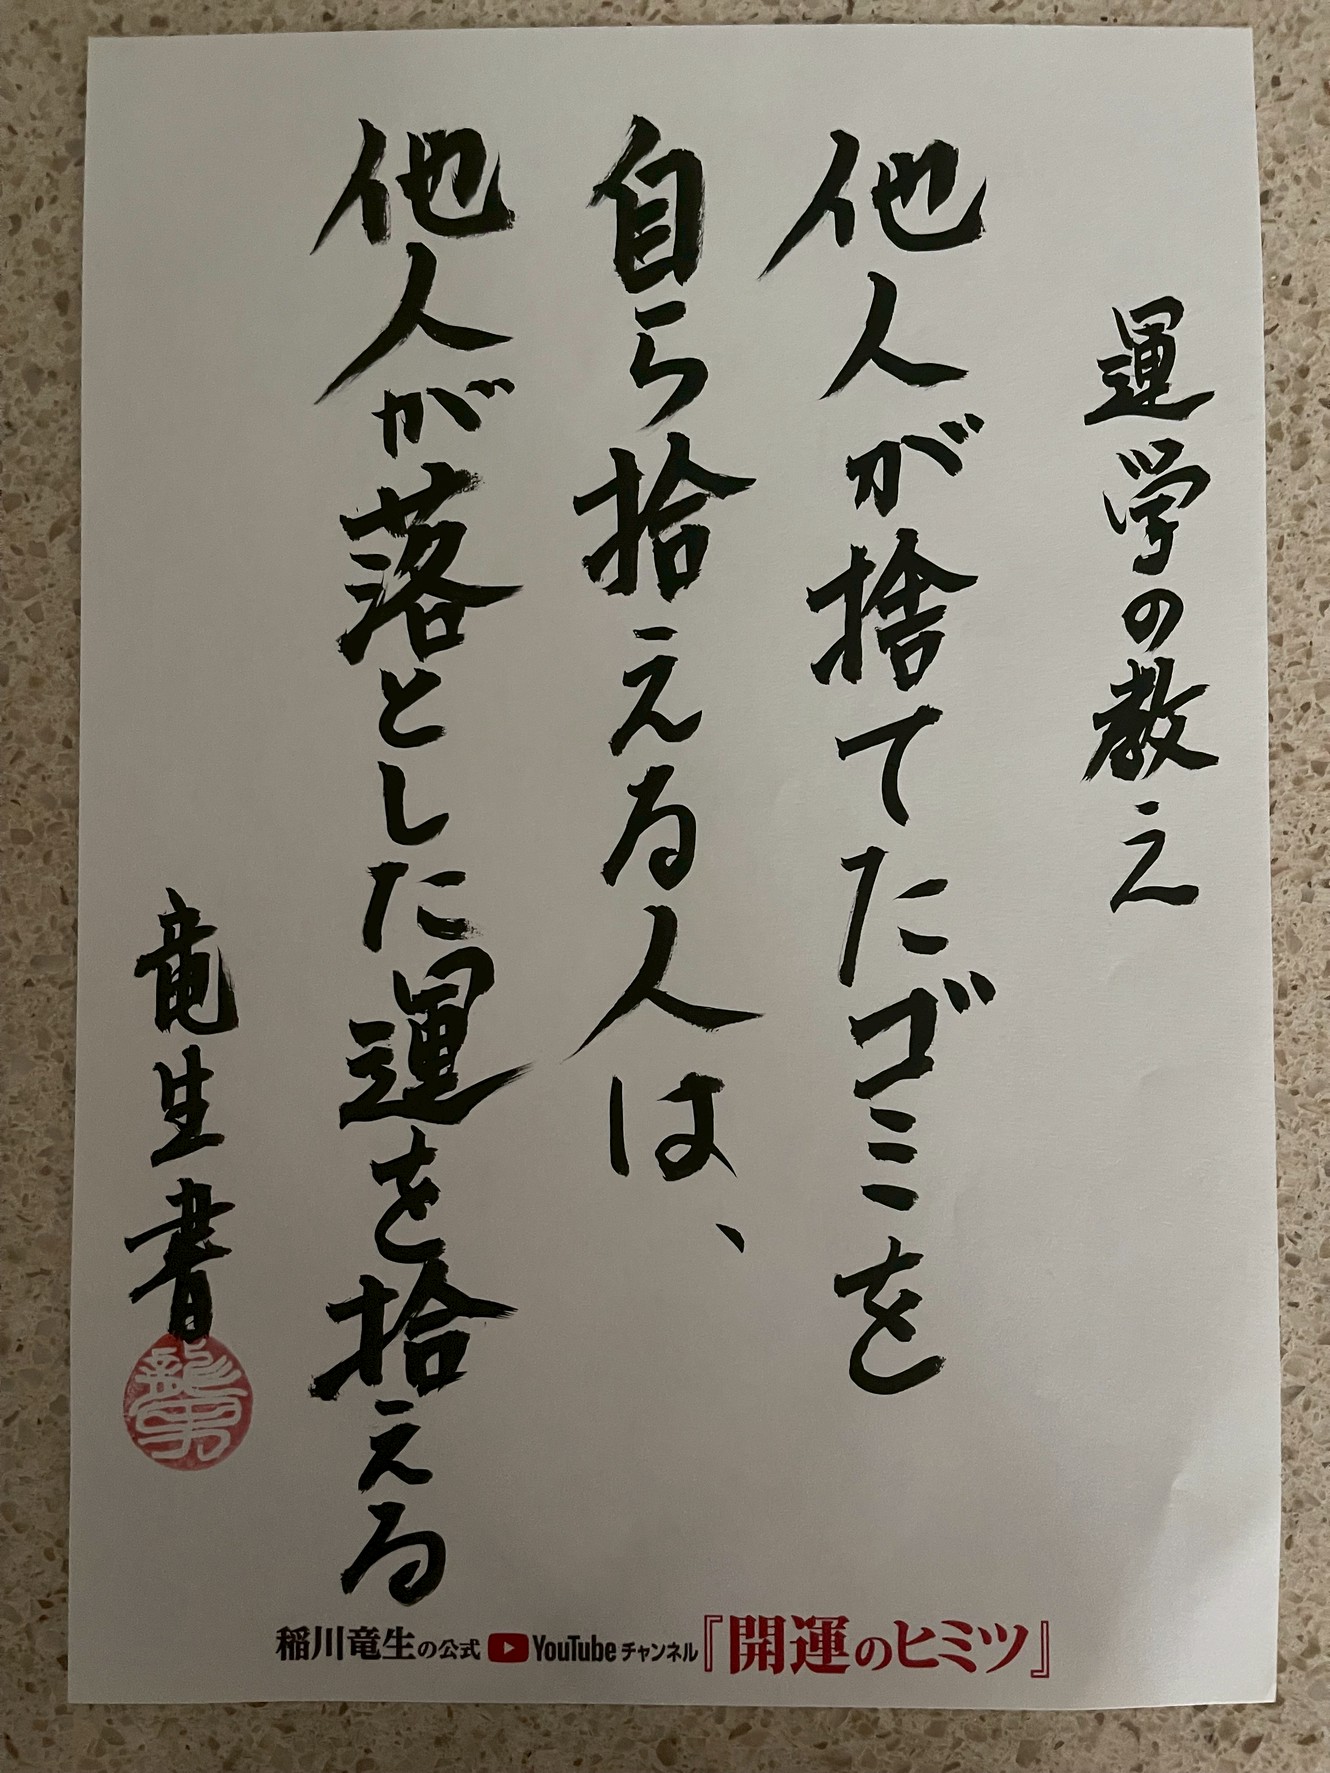 運学の教え
他人が捨てたゴミを
自ら拾える人は、
他人が落とした運を拾える
竜生書
稲川竜生の公式 YouTube チャンネル『開運のヒミツ』